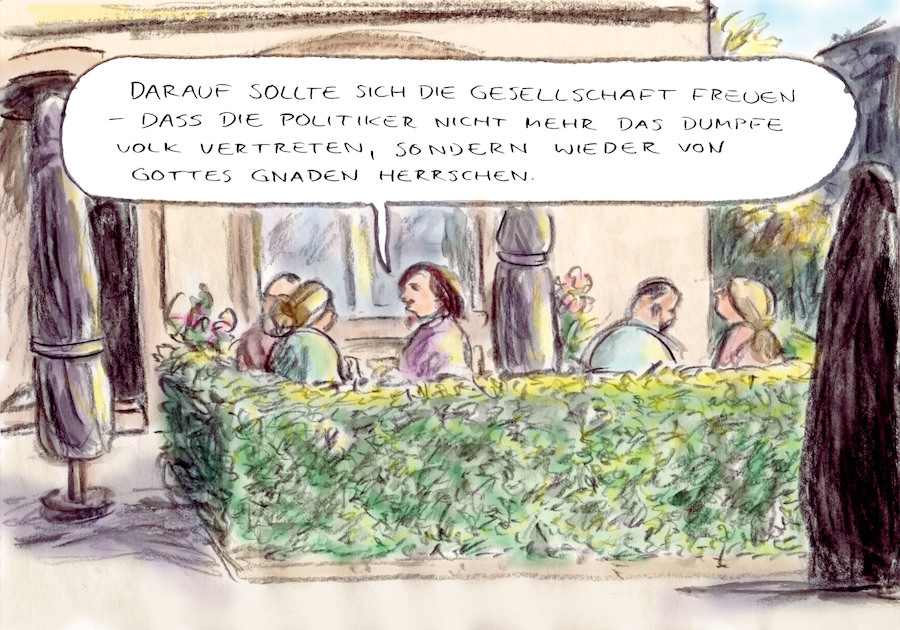 DARAUF SOLLTE SICH DIE GESELLSCHAFT FREUEN
- DASS DIE POLITIKER NICHT MEHR DAS DUMPFE
VOLK VERTRETEN, SONDERN WIEDER VON
GOTTES GNADEN HERRSCHEN.